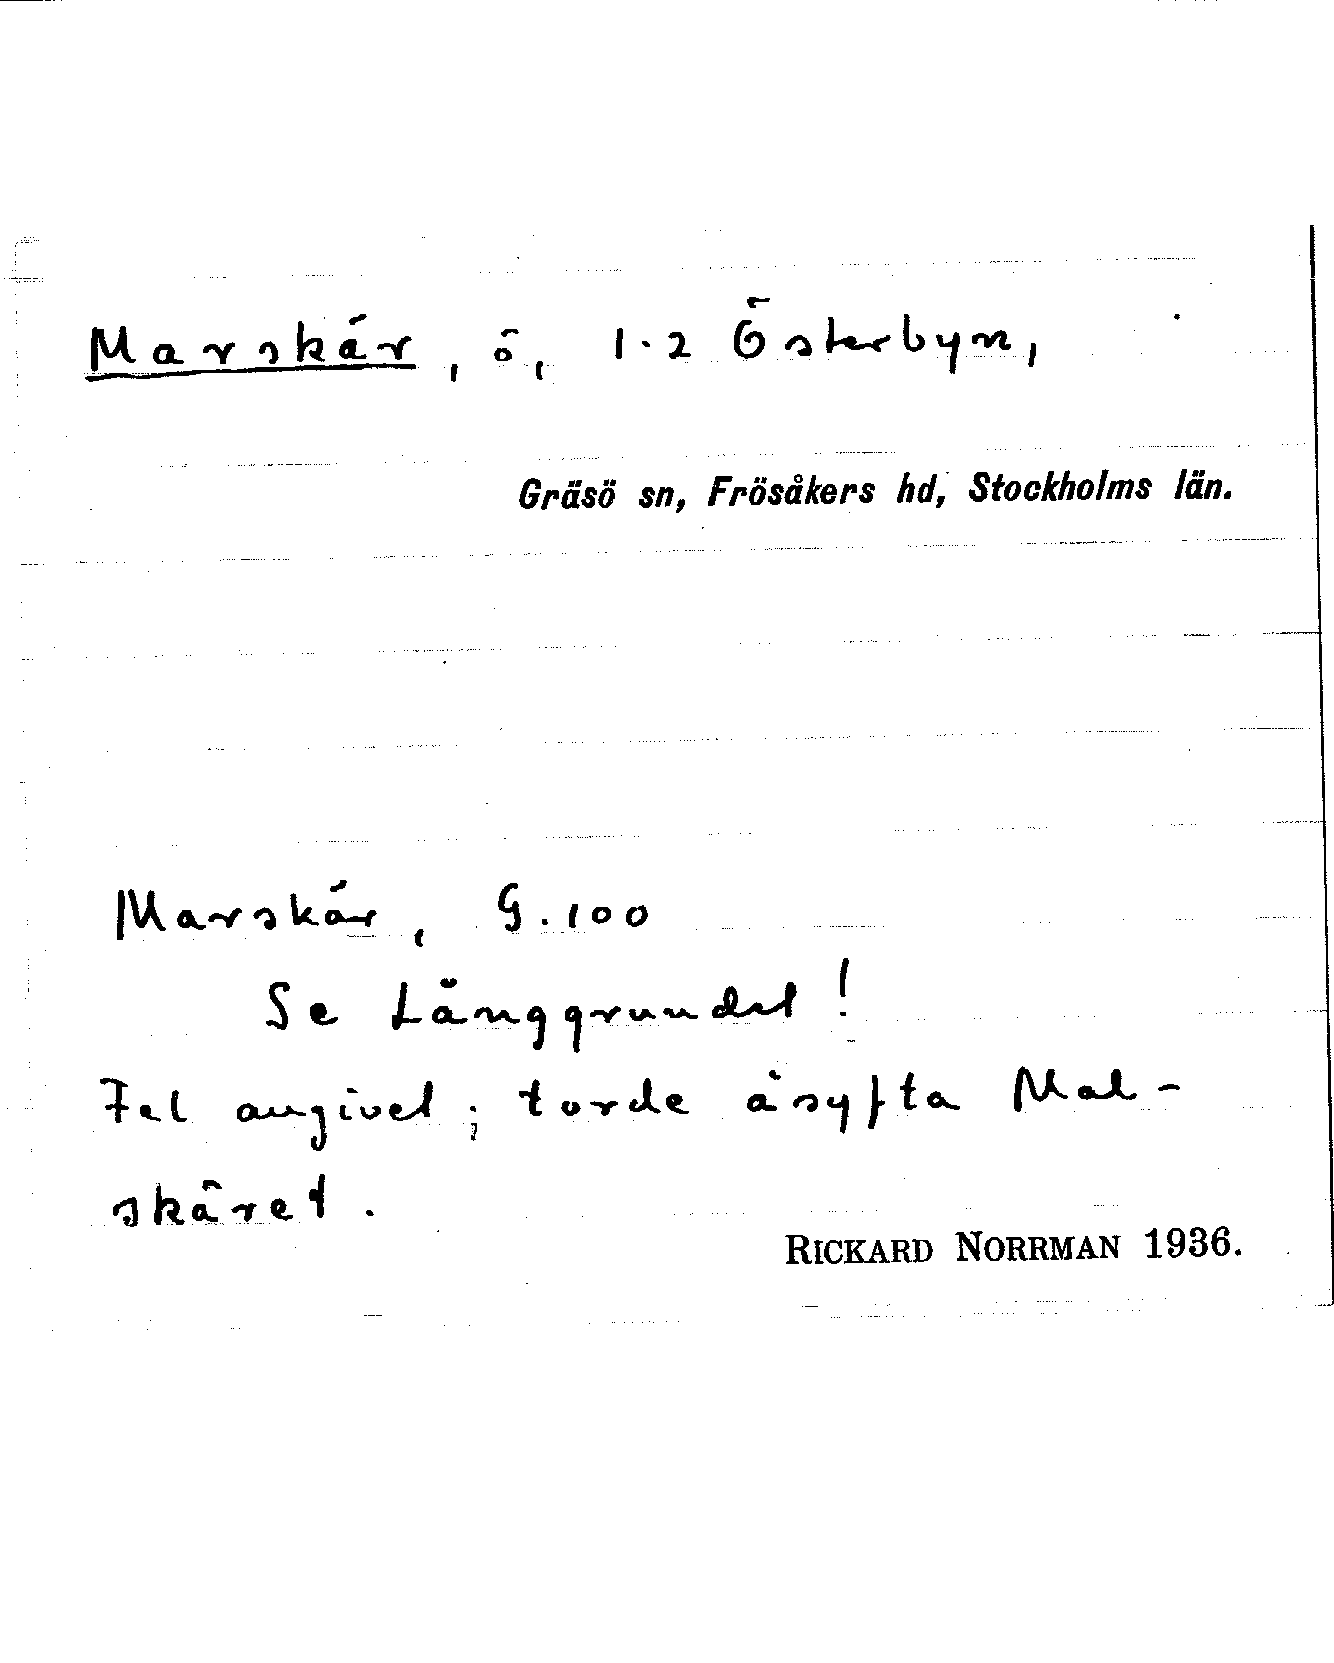 Marskär, ö, 1-2 Österbyn,
Gräsö sn, Frösåkers hd, Stockholms län.
Marskär, G.100
Se Långgrundet!
Fel angivet; torde åsyfta Mal-
skäret.
RICKARD NORRMAN 1936.